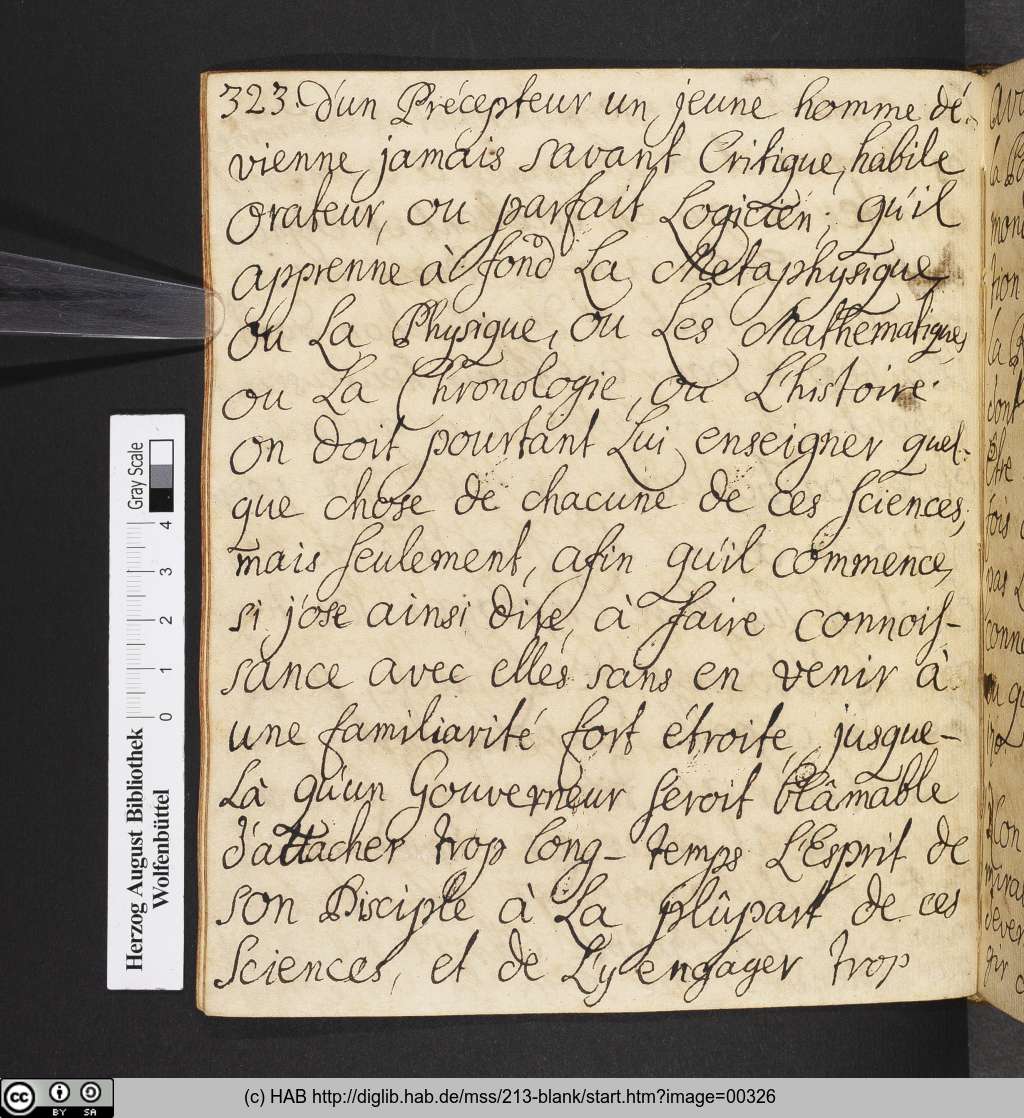 323. d'un Précepteur un jeune homme dé-
vienne jamais savant Critique, habile
Orateur, ou parfait Logicien; qu'il
apprenne à fond La Metaphysique,
ou La Physique, ou Les Mathematiques,
ou La Chronologie, ou L'histoire.
on doit pourtant Lui enseigner quel-
que chose de chacune de ces Sciences,
mais seulement, afin qu'il commence,
si j'ose ainsi dire, à faire connois-
sance avec elles sans en venir à
une familiarité fort étroite, jusque-
Là qu'un Gouverneur seroit blâmable
d'attacher trop long-temps L'Esprit de
son Disciple à La plûpart de ces
Sciences, et de L'y engager trop
Herzog August Bibliothek
Wolfenbüttel
Gray Scale
0 1 2 3 4
(c) HAB http://diglib.hab.de/mss/213-blank/start.htm?image=00326
cc BY SA